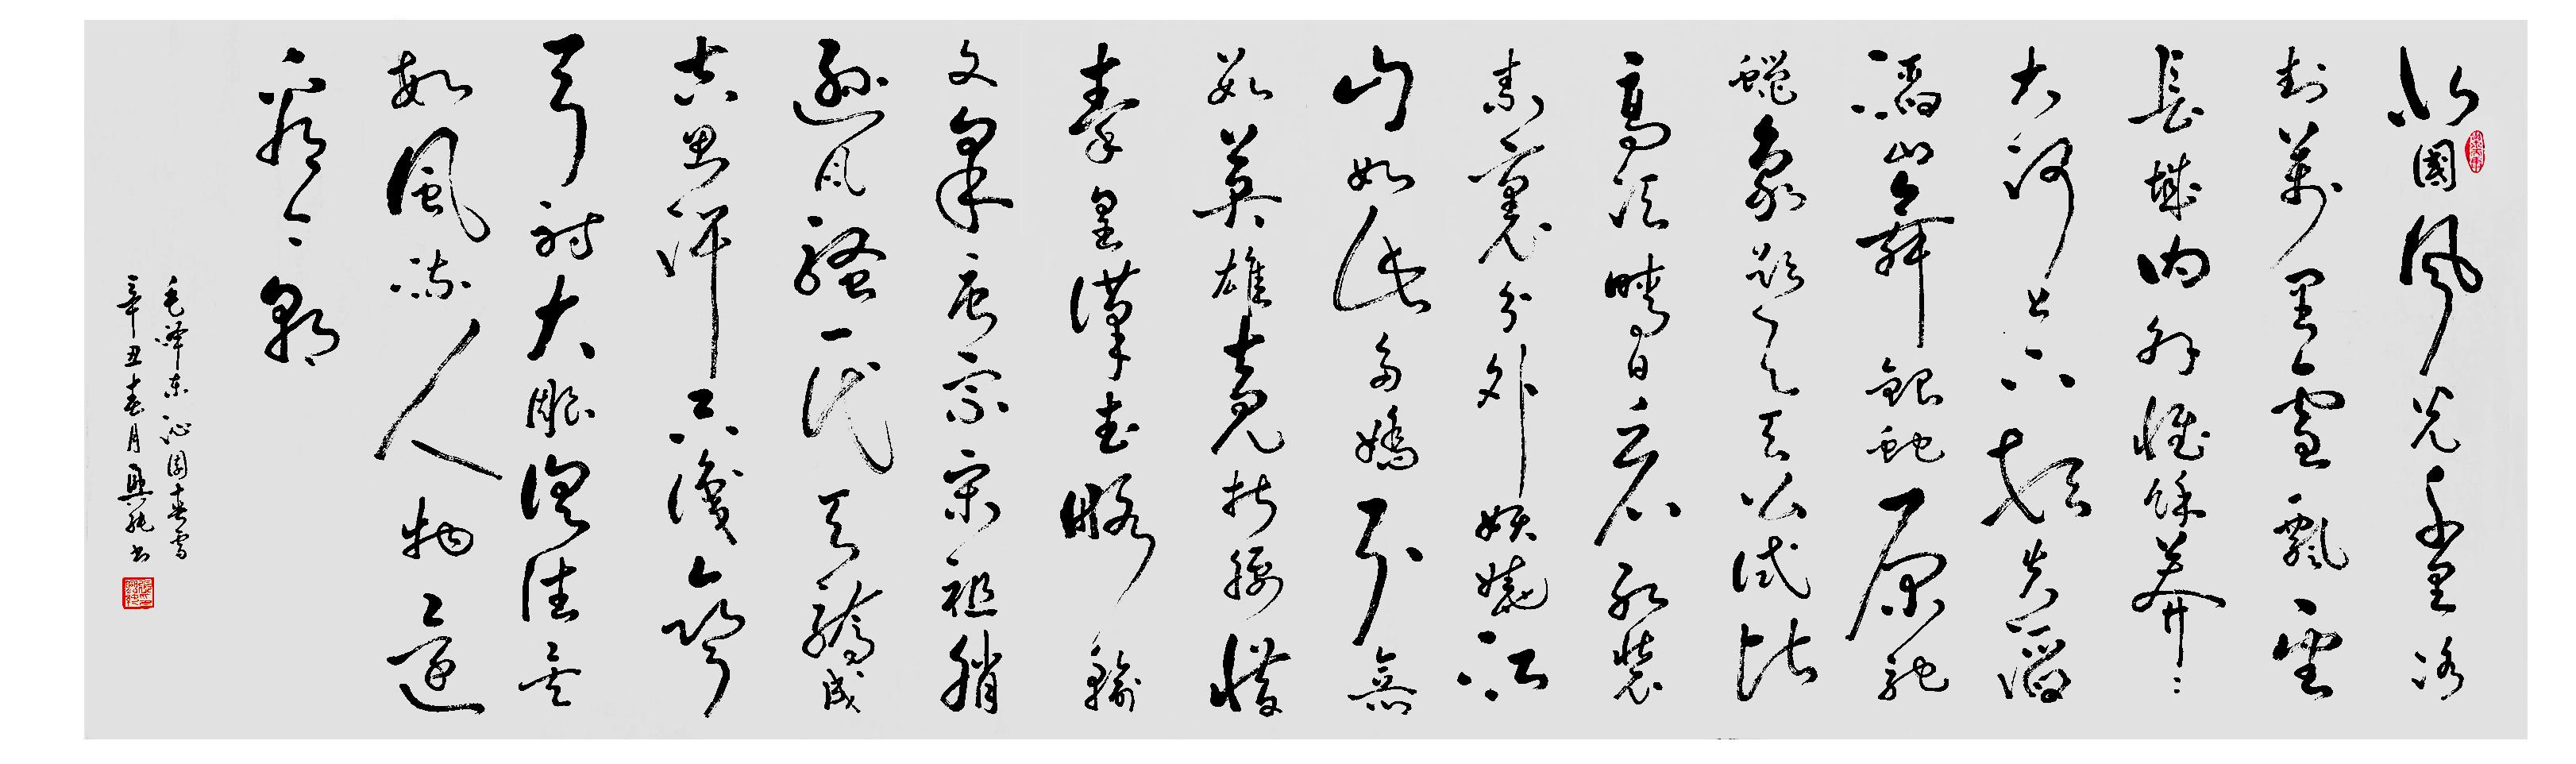 北國风光千里冰
封萬里雪飄望
長城内外惟餘莽〻
大河上下頓失滔
滔山舞銀蛇原馳
蠟象欲与天公試比
高須晴日看红裝
素裹分外妖嬈江
山如此多嬌引無
數英雄竞折腰惜
秦皇漢武略輸
文采唐宗宋祖稍
遜风騷一代天驕成
吉思汗只識彎
弓射大雕俱往矣
數風流人物還
看今朝
毛泽东沁園春雪
辛丑春月書